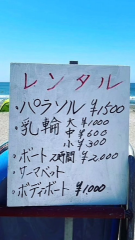 レンタル
・パラソル ¥1500
・乳輪 大 ¥1000
中 ¥600
小 ¥300
・ボート 2時間 ¥2,000
・サーマベット
・ボディボート ¥1,000